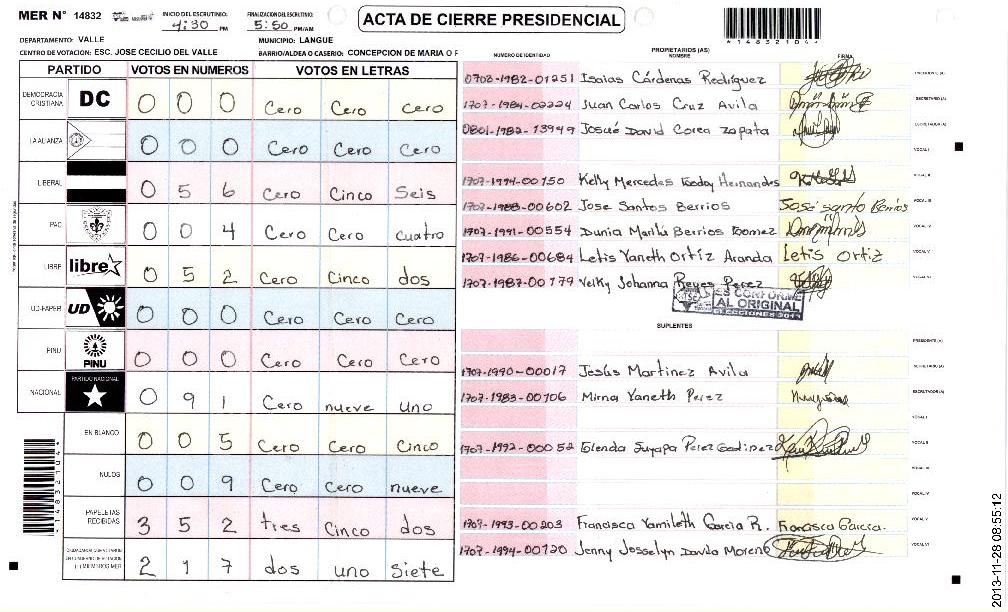 MER N° 14832
INICIO DEL ESCRUTINIO: 4:30 PM
FINALIZACION DEL ESCRUTINIO: 5:50 PM/AM
ACTA DE CIERRE PRESIDENCIAL
*1483210*
DEPARTAMENTO: VALLE
MUNICIPIO: LANGUE
CENTRO DE VOTACION: ESC. JOSE CECILIO DEL VALLE
BARRIO/ALDEA O CASERIO: CONCEPCION DE MARIA O F
PARTIDO VOTOS EN NUMEROS VOTOS EN LETRAS
DEMOCRACIA CRISTIANA DC 0 0 0 Cero Cero cero
LA ALIANZA 0 0 0 Cero Cero Cero
LIBERAL 0 5 6 Cero Cinco Seis
PAC 0 0 4 Cero Cero cuatro
LIBRE libre 0 5 2 Cero Cinco dos
UD-FAPER UD 0 0 0 Cero Cero Cero
PINU PINU 0 0 0 Cero Cero Cero
NACIONAL PARTIDO NACIONAL 0 9 1 Cero nueve uno
EN BLANCO 0 0 5 Cero Cero Cinco
NULOS 0 0 9 Cero Cero nueve
PAPELETAS RECIBIDAS 3 5 2 tres Cinco dos
(+) MIEMBROS MER 2 1 7 dos uno Siete
NUMERO DE IDENTIDAD
PROPIETARIOS (AS)
NOMBRE
FIRMA
0702-1982-01251 Isaias Cárdenas Rodríguez PRESIDENTE (A)
1707-1984-02224 Juan Carlos Cruz Avila SECRETARIO (A)
0801-1982-13949 Josué David Corea Zapata ESCRUTADOR (A)
VOCAL I
1707-1994-00750 Kelly Mercedes Hernandes VOCAL II
1707-1988-00602 Jose Santos Berrios José santo Berrios VOCAL III
1707-1991-00554 Dunia Berrios Gomez VOCAL IV
1707-1986-00684 Letis Yaneth Ortíz Aranda Letis Ortiz VOCAL V
1707-1987-00779 Velky Johanna Reyes Perez VOCAL VI
ES CONFORME
AL ORIGINAL
ELECCIONES 2013
SUPLENTES
PRESIDENTE (A)
1707-1990-00017 Jesús Martinez Avila SECRETARIO (A)
1707-1983-00706 Mirna Yaneth Perez ESCRUTADOR (A)
VOCAL I
1707-1992-00052 Glenda Suyapa Perez Godinez VOCAL II
VOCAL III
VOCAL IV
1707-1993-00203 Francisca Yamileth Garcia R. Francisca Garcia. VOCAL V
1707-1994-00720 Jenny Josselyn Davila Moreno VOCAL VI
2013-11-28 08:55:12